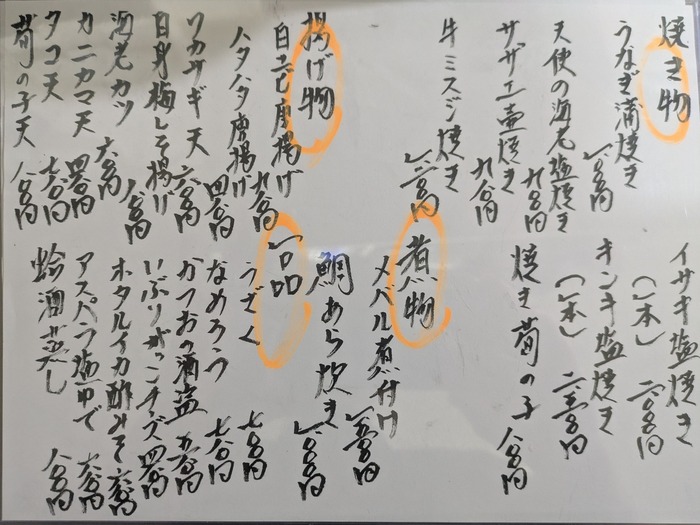 焼き物
うなぎ蒲焼き 一八〇〇円
天使の海老塩焼き 九八〇円
サザエ壷焼き 九八〇円
牛ミスジ焼き
イサキ塩焼き
(一本) 二八〇〇円
キンキ塩焼き
(一本)
焼き筍の子 八〇〇円
煮物
メバル煮付け
鯛あら炊き 一八〇〇円
揚げ物
白エビ唐揚げ 九八〇円
ハタハタ唐揚げ 四八〇円
ワカサギ天 六八〇円
白身梅しそ揚げ 八〇〇円
海老カツ 六八〇円
カニカマ天 四八〇円
タコ天 七八〇円
筍の子天 八〇〇円
一品
うざく 七八〇円
なめろう 七八〇円
かつおの酒盗 五八〇円
いぶりがっこチーズ 四八〇円
ホタルイカ酢みそ 六八〇円
アスパラ塩ゆで 六八〇円
蛤酒蒸し 八八〇円